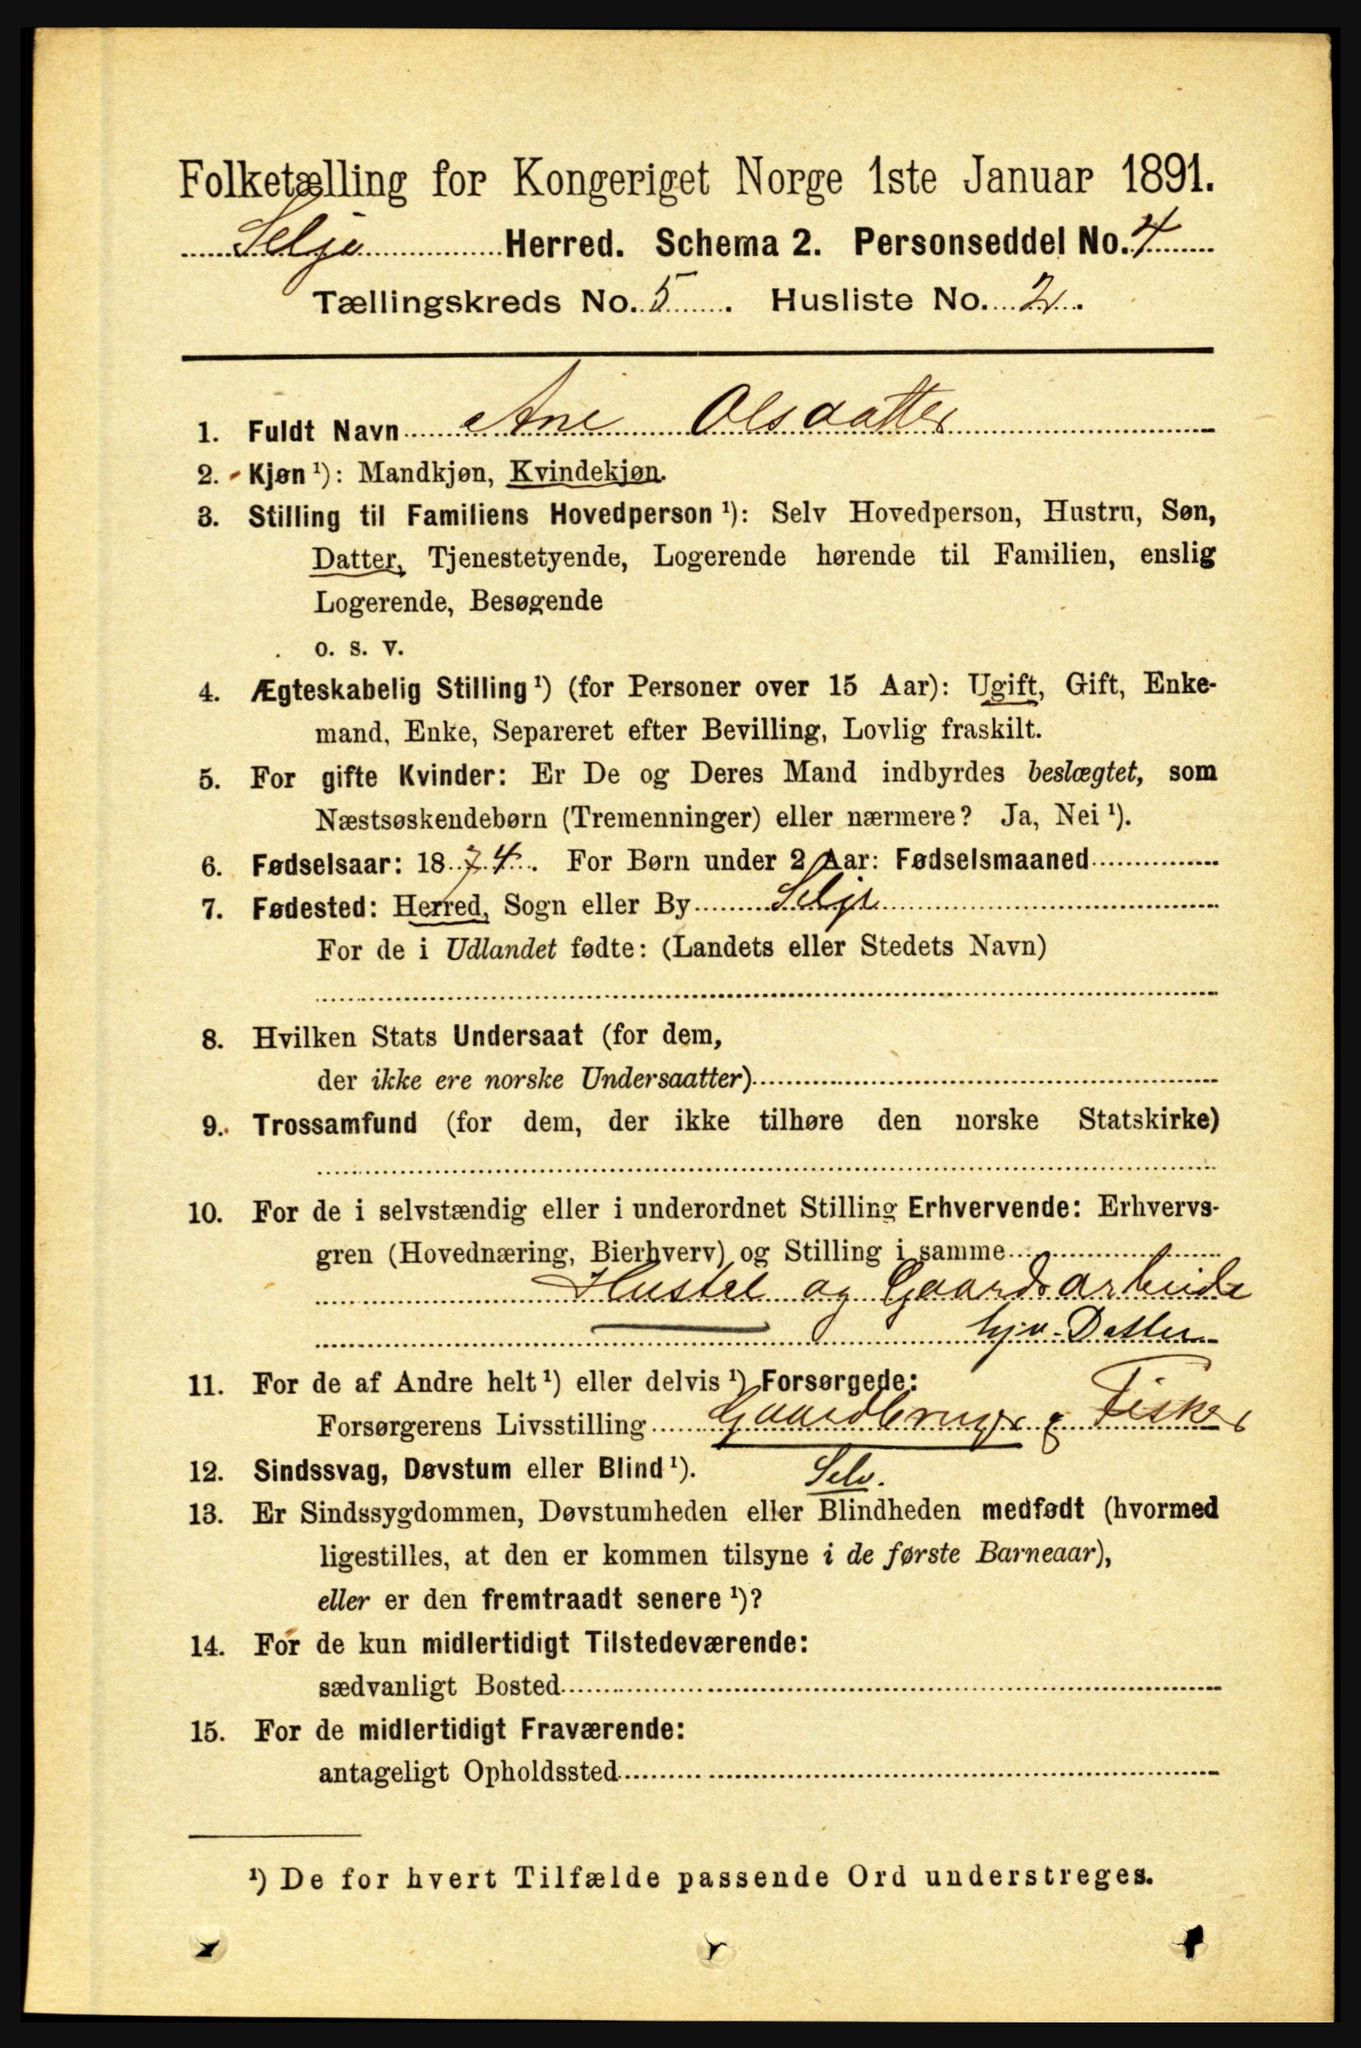 Folketælling for Kongeriget Norge 1ste Januar 1891.
Selje Herred. Schema 2. Personseddel No. 4
Tællingskreds No. 5. Husliste No. 2.
1. Fuldt Navn Ane Olsdatter
2. Kjøn ¹): Mandkjøn, Kvindekjøn.
3. Stilling til Familiens Hovedperson ¹): Selv Hovedperson, Hustru, Søn,
Datter, Tjenestetyende, Logerende hørende til Familien, enslig
Logerende, Besøgende
o. s. v.
4. Ægteskabelig Stilling ¹) (for Personer over 15 Aar): Ugift, Gift, Enke-
mand, Enke, Separeret efter Bevilling, Lovlig fraskilt.
5. For gifte Kvinder: Er De og Deres Mand indbyrdes beslægtet, som
Næstsøskendebørn (Tremenninger) eller nærmere? Ja, Nei ¹).
6. Fødselsaar: 1874. For Børn under 2 Aar: Fødselsmaaned
7. Fødested: Herred, Sogn eller By Selje
For de i Udlandet fødte: (Landets eller Stedets Navn)
8. Hvilken Stats Undersaat (for dem,
der ikke ere norske Undersaatter)
9. Trossamfund (for dem, der ikke tilhøre den norske Statskirke)
10. For de i selvstændig eller i underordnet Stilling Erhvervende: Erhvervs-
gren (Hovednæring, Bierhverv) og Stilling i samme
Hustel og Gaardsarbeide
hjv. Datter
11. For de af Andre helt ¹) eller delvis ¹) Forsørgede:
Forsørgerens Livsstilling Gaardbruger & Fisker
Selv.
12. Sindssvag, Døvstum eller Blind ¹).
13. Er Sindssygdommen, Døvstumheden eller Blindheden medfødt (hvormed
ligestilles, at den er kommen tilsyne i de første Barneaar),
eller er den fremtraadt senere ¹)?
14. For de kun midlertidigt Tilstedeværende:
sædvanligt Bosted
15. For de midlertidigt Fraværende:
antageligt Opholdssted
¹) De for hvert Tilfælde passende Ord understreges.